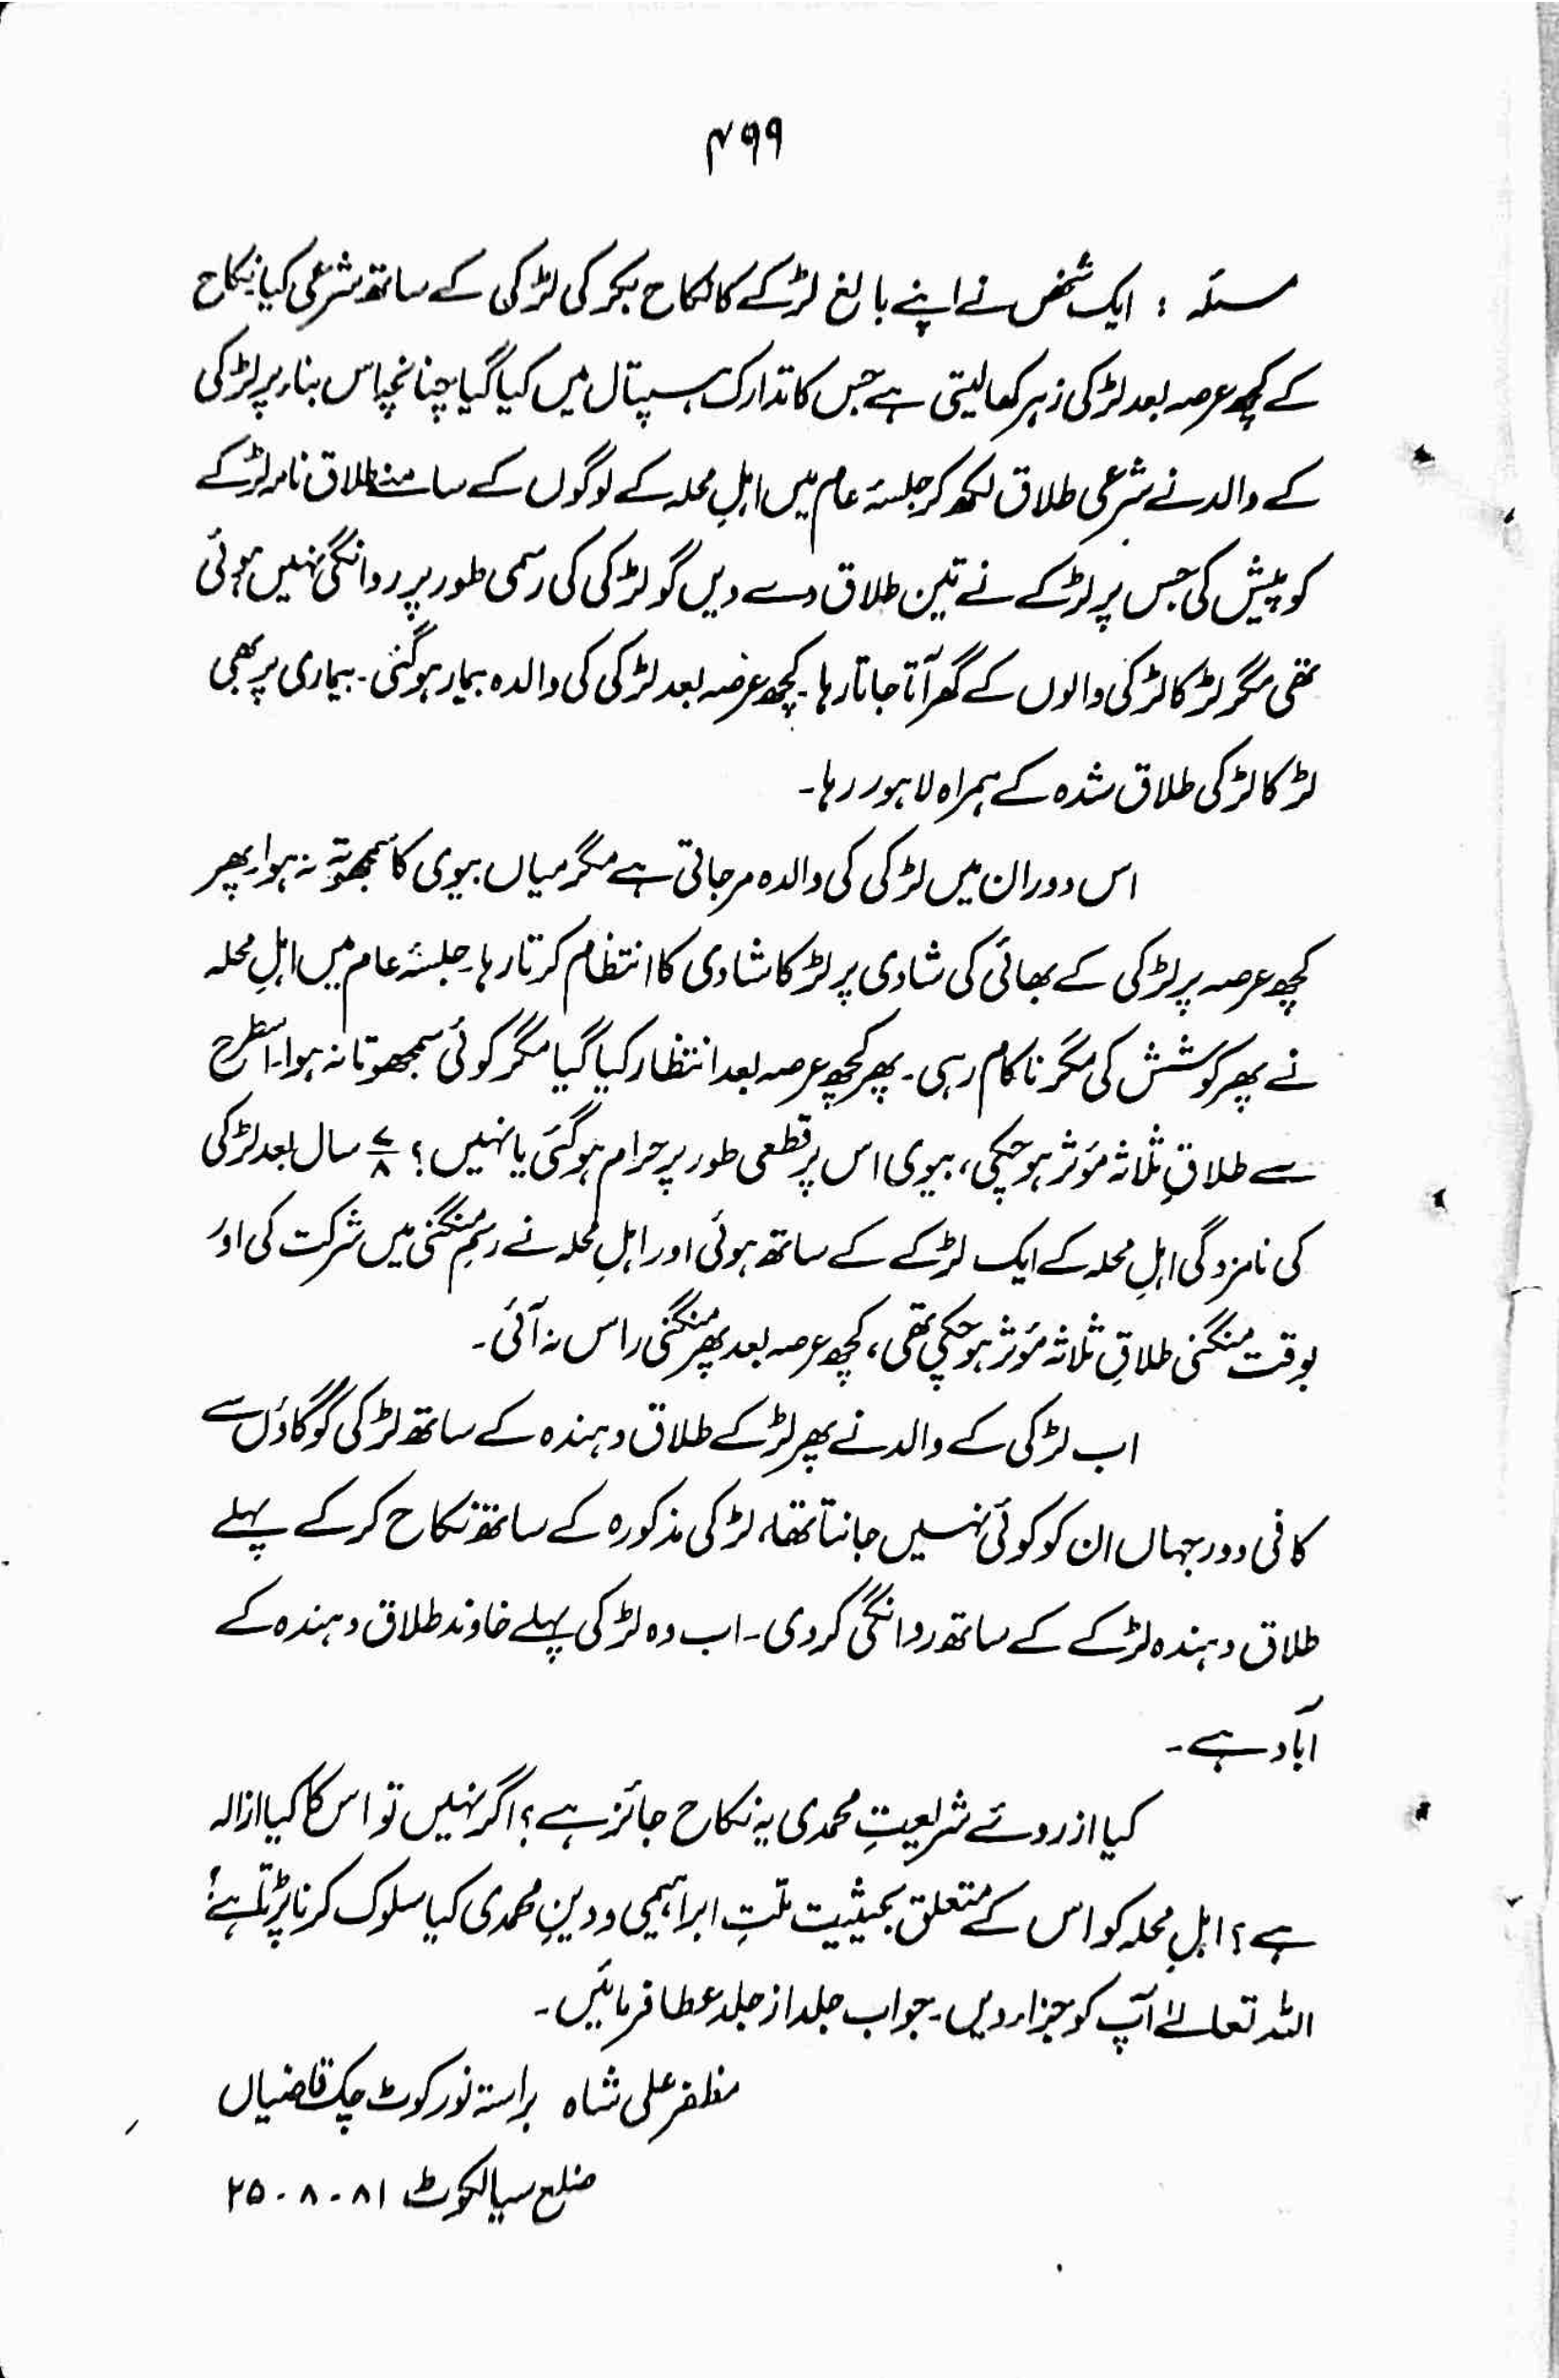 ۴۹۹
مسئلہ : ایک شخص نے اپنے بالغ لڑکے کا نکاح بکر کی لڑکی کے ساتھ شرعی کیا نکاح
کے کچھ عرصہ بعد لڑکی زہر کھا لیتی ہے جس کا تدارک ہسپتال میں کیا گیا چنانچہ اس بناء پر لڑکی
کے والد نے شرعی طلاق لکھ کر جلسۂ عام میں اہلِ محلہ کے لوگوں کے سامنے طلاق نامہ لڑکے
کو پیش کی جس پر لڑکے نے تین طلاق دے دیں گو لڑکی کی رسمی طور پر روانگی نہیں ہوئی
تھی مگر لڑکا لڑکی والوں کے گھر آتا جاتا رہا۔ کچھ عرصہ بعد لڑکی کی والدہ بیمار ہوگئی۔ بیماری پر بھی
لڑکا لڑکی طلاق شدہ کے ہمراہ لاہور رہا۔
اس دوران میں لڑکی کی والدہ مر جاتی ہے مگر میاں بیوی کا سمجھوتہ نہ ہوا۔ پھر
کچھ عرصہ پر لڑکی کے بھائی کی شادی پر لڑکا شادی کا انتظام کرتا رہا۔ جلسۂ عام میں اہلِ محلہ
نے پھر کوشش کی مگر ناکام رہی۔ پھر کچھ عرصہ بعد انتظار کیا گیا مگر کوئی سمجھوتا نہ ہوا۔ اسطرح
سے طلاقِ ثلاثہ مؤثر ہو چکی، بیوی اس پر قطعی طور پر حرام ہوگئی یا نہیں؟ ۷/۸ سال بعد لڑکی
کی نامزدگی اہلِ محلہ کے ایک لڑکے کے ساتھ ہوئی اور اہلِ محلہ نے رسمِ منگنی میں شرکت کی اور
بوقت منگنی طلاقِ ثلاثہ مؤثر ہو چکی تھی، کچھ عرصہ بعد پھر منگنی راس نہ آئی۔
اب لڑکی کے والد نے پھر لڑکے طلاق دہندہ کے ساتھ لڑکی کو گاؤں سے
کافی دور جہاں ان کو کوئی نہیں جانتا تھا، لڑکی مذکورہ کے ساتھ نکاح کر کے پہلے
طلاق دہندہ لڑکے کے ساتھ روانگی کر دی۔ اب وہ لڑکی پہلے خاوند طلاق دہندہ کے
آباد ہے۔
کیا از روئے شریعتِ محمدی یہ نکاح جائز ہے؟ اگر نہیں تو اس کا کیا ازالہ
ہے؟ اہلِ محلہ کو اس کے متعلق بحیثیت ملتِ ابراہیمی و دینِ محمدی کیا سلوک کرنا پڑتا ہے؟
اللہ تعالےٰ آپ کو جزاء دیں۔ جواب جلد از جلد عطا فرمائیں۔
مظفر علی شاہ براستہ نورکوٹ چک قاضیاں
ضلع سیالکوٹ ۸۱-۸-۲۵